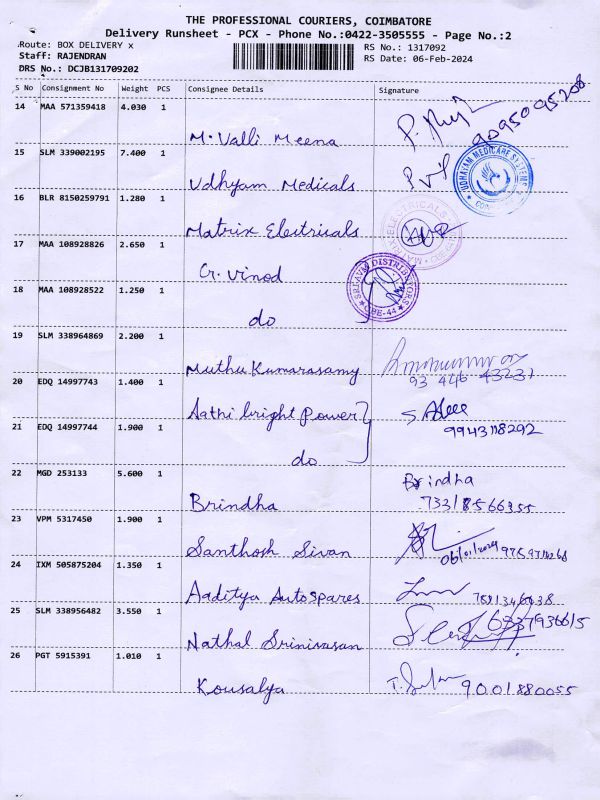 THE PROFESSIONAL COURIERS, COIMBATORE
Delivery Runsheet - PCX - Phone No.:0422-3505555 - Page No.:2
Route: BOX DELIVERY x
Staff: RAJENDRAN
DRS No.: DCJB131709202
RS No.: 1317092
RS Date: 06-Feb-2024
S No Consignment No Weight PCS Consignee Details Signature
14 MAA 571359418 4.030 1
M. Valli Meena
9095095208
15 SLM 339002195 7.400 1
Udhyam Medicals
UDHAYAM MEDICARE SYSTEMS
16 BLR 8150259791 1.280 1
Matrix Electricals
MATRIX ELECTRICALS
17 MAA 108928826 2.650 1
G. Vinod
SRI AVM DISTRIBUTORS
CBE-44
18 MAA 108928522 1.250 1
do
19 SLM 338964869 2.200 1
Muthu Kumarasamy
93 446 43231
20 EDQ 14997743 1.400 1
Aathi bright Power
21 EDQ 14997744 1.900 1
9943118292
do
22 MGD 253133 5.600 1
Brindha
Brindha
73318566355
23 VPM 5317450 1.900 1
Santhosh Sivan
24 IXM 505875204 1.350 1
Aaditya Autospares
25 SLM 338956482 3.550 1
Nathal Srinivasan
6337936615
26 PGT 5915391 1.010 1
Kousalya
9001880055